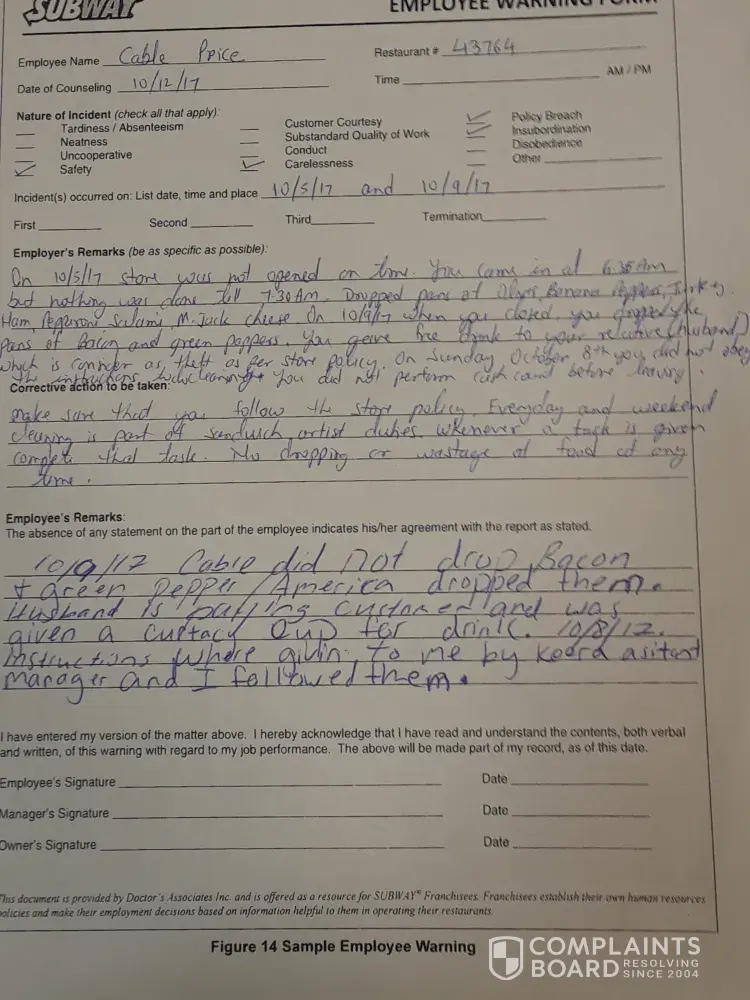 SUBWAY
EMPLOYEE WARNING FORM
Employee Name Cable Price
Restaurant # 43764
Date of Counseling 10/12/17
Time AM / PM
Nature of Incident (check all that apply):
Tardiness / Absenteeism
Neatness
Uncooperative
✓ Safety
Customer Courtesy
Substandard Quality of Work
Conduct
✓ Carelessness
✓ Policy Breach
✓ Insubordination
Disobedience
Other
Incident(s) occurred on: List date, time and place 10/5/17 and 10/9/17
First Second Third Termination
Employer's Remarks (be as specific as possible):
On 10/5/17 store was not opened on time. You came in at 6:35 Am
but nothing was done till 7:30 Am. Dropped pans of Olives, Banana Peppers, Turkey
Ham, Pepperoni Salami, M. Jack cheese. On 10/9/17 when you closed, you dropped the
pans of Bacon and green peppers. You gave free drink to your relative (husband)
which is consider as, theft as per store policy. On Sunday October 8th you did not obey
the instructions cleaning. You did not perform cash count before leaving.
Corrective action to be taken:
make sure that you follow the store policy. Everyday and weekend
cleaning is part of sandwich artist duties. Whenever a task is given
complete that task. No dropping or wastage of food at any
time.
Employee's Remarks:
The absence of any statement on the part of the employee indicates his/her agreement with the report as stated.
10/9/17 Cable did not drop Bacon
+ green pepper/America dropped them.
Husband is paying customer and was
given a curtacy cup for drink. 10/8/17.
instructions where givin to me by asitant
manager and I followed them.
I have entered my version of the matter above. I hereby acknowledge that I have read and understand the contents, both verbal
and written, of this warning with regard to my job performance. The above will be made part of my record, as of this date.
Employee's Signature Date
Manager's Signature Date
Owner's Signature Date
This document is provided by Doctor's Associates Inc. and is offered as a resource for SUBWAY® Franchisees. Franchisees establish their own human resources
policies and make their employment decisions based on information helpful to them in operating their restaurants.
Figure 14 Sample Employee Warning
COMPLAINTS
BOARD RESOLVING
SINCE 2004